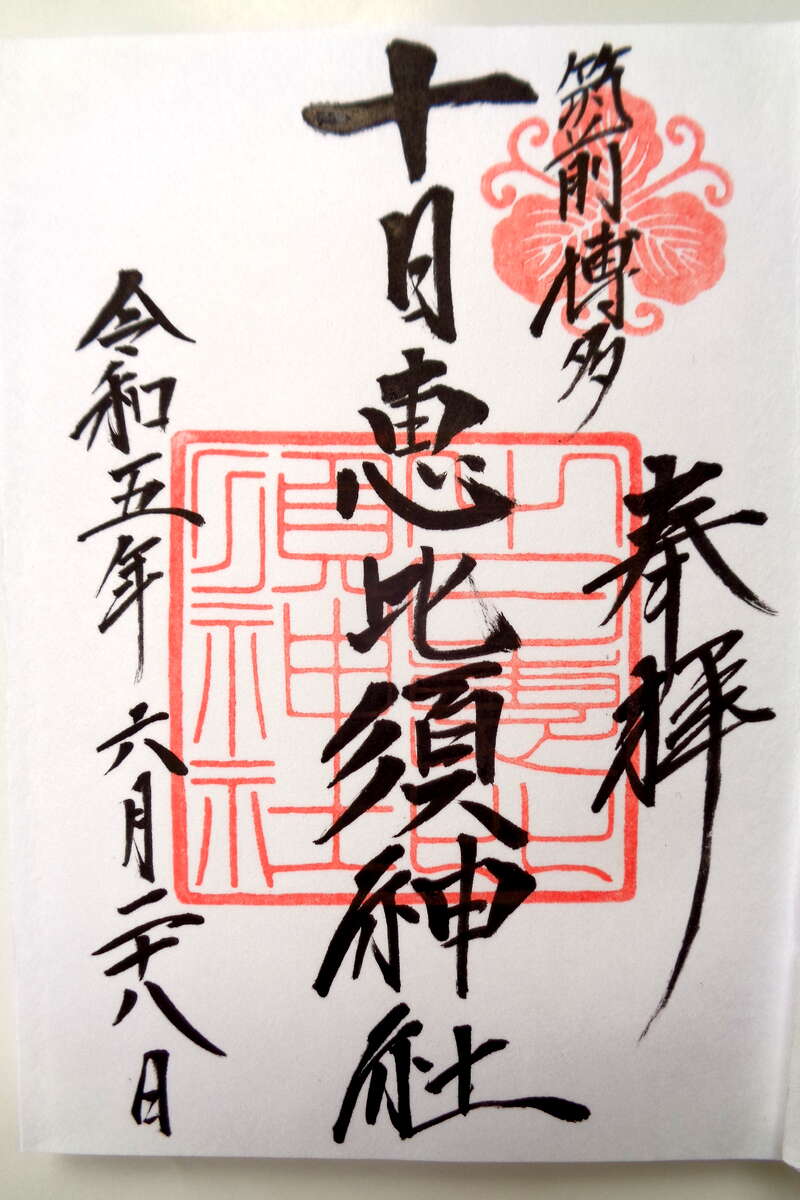 筑前博多
奉拝
十日恵比須神社
令和五年 六月二十八日
十日恵比
須神社